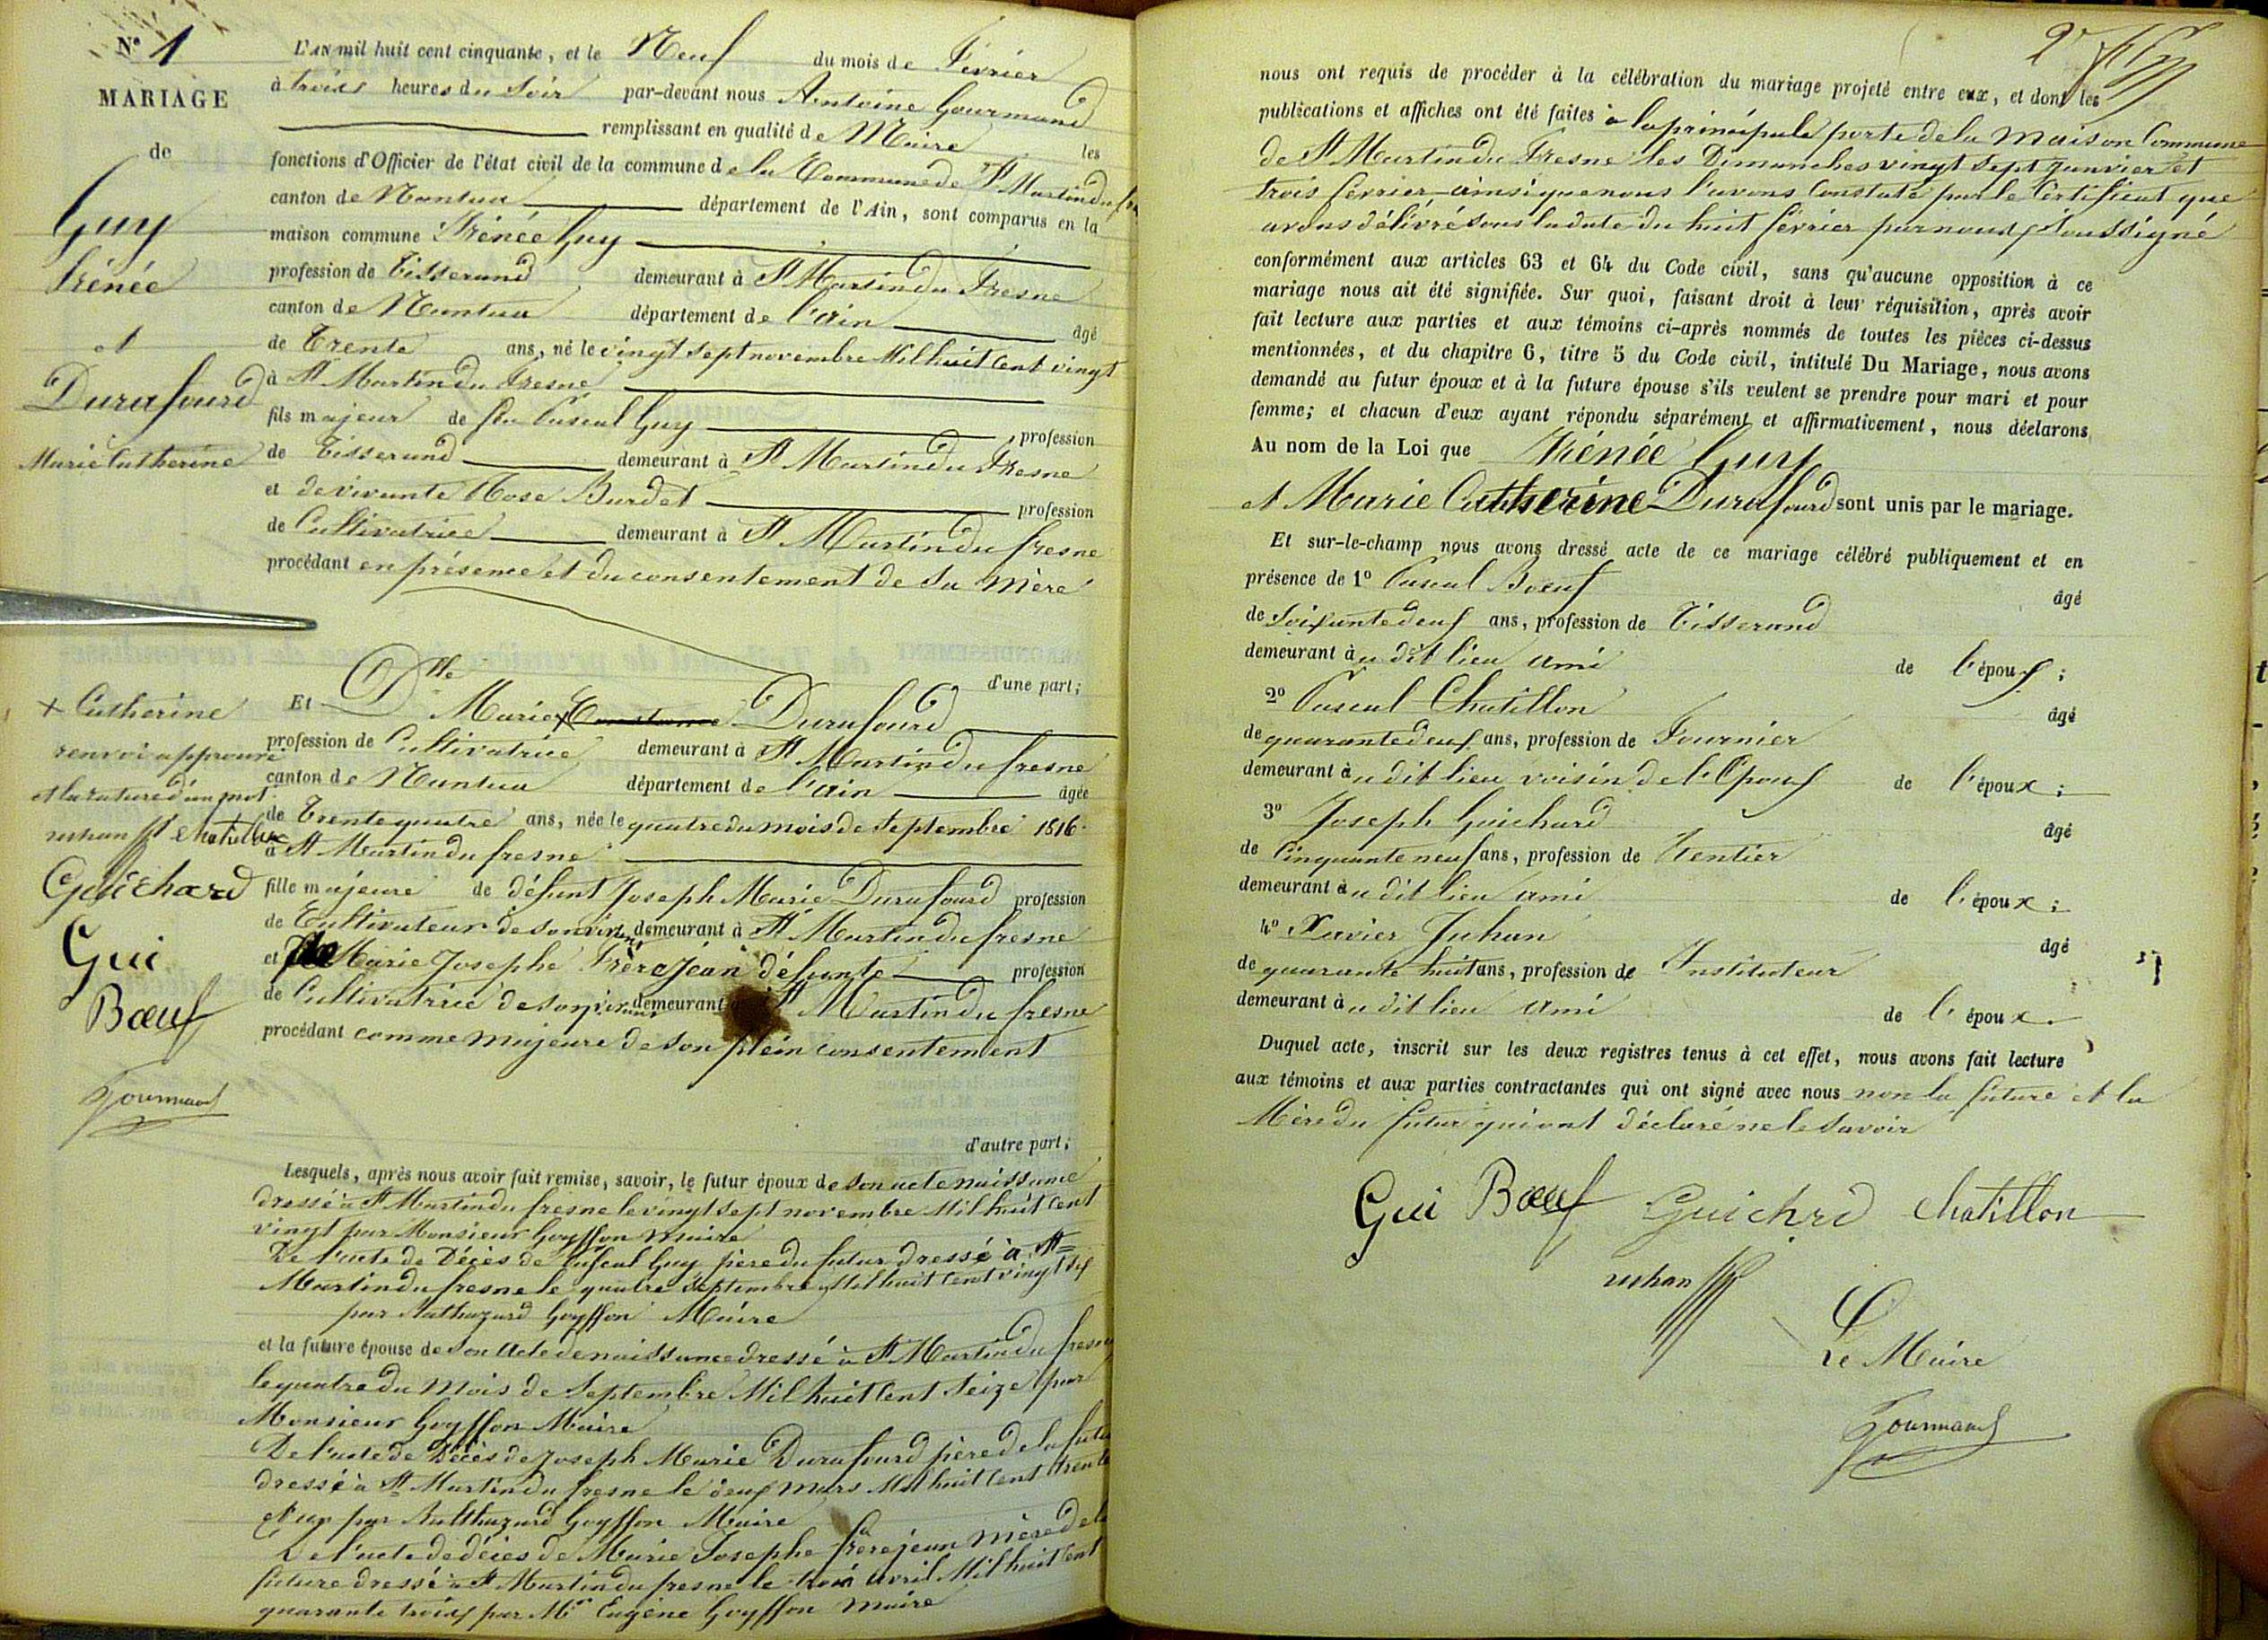 N.º 1
MARIAGE
de
Guy
Irénée
et
Durafourd
Marie Catherine
L'AN mil huit cent cinquante, et le Neuf du mois de Février
à trois heures du Soir par-devant nous Antoine Gourmand
remplissant en qualité de Maire les
fonctions d'Officier de l'état civil de la commune de la Commune de St Martin du fre
canton de Nantua département de l'Ain, sont comparus en la
maison commune Irénée Guy
profession de Tisserand demeurant à St Martin du Fresne
canton de Nantua département de l'ain âgé
de Trente ans, né le vingt sept novembre Mil huit Cent vingt
à St Martin du Fresne
fils majeur de feu Pascal Guy profession
de Tisserand demeurant à St Martin du Fresne
et de vivante Rose Burdet profession
de Cultivatrice demeurant à St Martin du fresne
procédant en présence et du consentement de Sa Mère
d'une part;
Et Dlle Marie x Durafourd
profession de Cultivatrice demeurant à St Martin du fresne
canton de Nantua département de l'ain âgée
de Trente quatre ans, née le quatre du mois de Septembre 1816
à St Martin du fresne
fille majeure de défunt Joseph Marie Durafourd profession
de Cultivateur de son vivant demeurant à St Martin du fresne
et de Marie Josephe Frèrejean défunte profession
de Cultivatrice de son vivant demeurant à St Martin du fresne
procédant comme majeure de son plein consentement
d'autre part;
x Catherine
renvoi approuvé
et la rature d'un mot
juhan chatillon
Guichard
Gui
Bœuf
Gourmand
Lesquels, après nous avoir fait remise, savoir, le futur époux de son acte naissance
dressé à St Martin du fresne le vingt sept novembre Mil huit Cent
vingt par Monsieur Goyffon maire
De l'acte de Décès de Pascal Guy père du futur dressé à St=
Martin du fresne le quatre Septembre Mil huit Cent vingt
par Balthazard Goyffon Maire
et la future épouse de son Acte de naissance dressé à St Martin du fresne
le quatre du Mois de Septembre Mil huit Cent Seize par
Monsieur Goyffon Maire
De l'acte de Décès de Joseph Marie Durafourd père de la futu
dressé à St Martin du fresne le deux mars Mil huit Cent trente
par Balthazard Goyffon Maire
De l'acte de décès de Marie Josephe frèrejean mère de la
future dressé à St Martin du fresne le trois avril Mil huit Cent
quarante trois par Mr Eugène Goyffon maire
2e
nous ont requis de procéder à la célébration du mariage projeté entre eux, et dont les
publications et affiches ont été faites à la principale porte de la Maison Commune
de St Martin du Fresne les Dimanches vingt Sept Janvier et
trois février ainsi que nous l'avons Constaté par le Certificat que
avons délivré sous la date du huit février par nous Soussigné
conformément aux articles 63 et 64 du Code civil, sans qu'aucune opposition à ce
mariage nous ait été signifiée. Sur quoi, faisant droit à leur réquisition, après avoir
fait lecture aux parties et aux témoins ci-après nommés de toutes les pièces ci-dessus
mentionnées, et du chapitre 6, titre 5 du Code civil, intitulé Du Mariage, nous avons
demandé au futur époux et à la future épouse s'ils veulent se prendre pour mari et pour
femme; et chacun d'eux ayant répondu séparément et affirmativement, nous déclarons
Au nom de la Loi que Irénée Guy
et Marie Catherine Durafourd sont unis par le mariage.
Et sur-le-champ nous avons dressé acte de ce mariage célébré publiquement et en
présence de 1º Pascal Bœuf âgé
de Soixante deux ans, profession de Tisserand
demeurant au dit lieu ami de l'époux;
2º Pascal Chatillon âgé
de quarante deux ans, profession de Fournier
demeurant au dit lieu voisin de l'Epoux de l'époux;
3º Joseph Guichard âgé
de Cinquante neuf ans, profession de Rentier
demeurant au dit lieu ami de l'époux;
4º Xavier Juhan âgé
de quarante huit ans, profession de Instituteur
demeurant au dit lieu ami de l'époux.
Duquel acte, inscrit sur les deux registres tenus à cet effet, nous avons fait lecture
aux témoins et aux parties contractantes qui ont signé avec nous non la future et la
Mère du futur qui ont déclaré ne le savoir
Gui Bœuf Guichrd chatillon
juhan
Le Maire
Gourmand